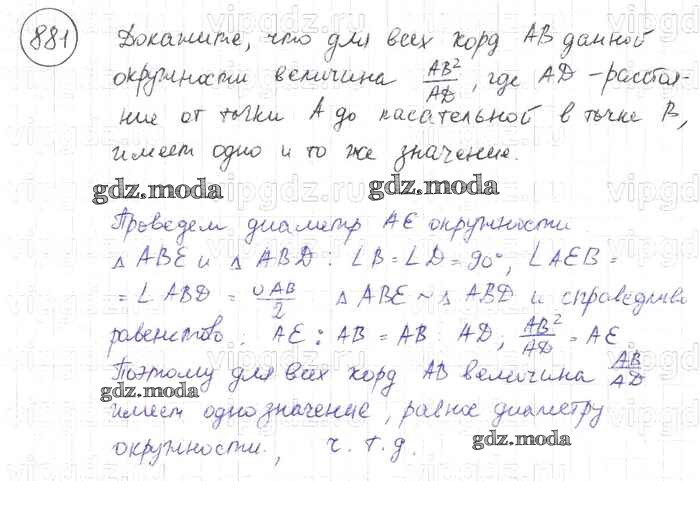 881 Докажите, что для всех хорд AB данной
окружности величина AB²/AD, где AD - расстоя-
ние от точки A до касательной в точке B,
имеет одно и то же значение.
gdz.moda gdz.moda
Проведем диаметр AE окружности.
△ ABE и △ ABD : ∠B = ∠D = 90°, ∠AEB =
= ∠ABD = ∪AB/2 △ ABE ~ △ ABD и справедливо
равенство: AE : AB = AB : AD, AB²/AD = AE
Поэтому для всех хорд AB величина AB/AD
gdz.moda
имеет одно значение, равное диаметру
окружности., ч.т.д.
gdz.moda